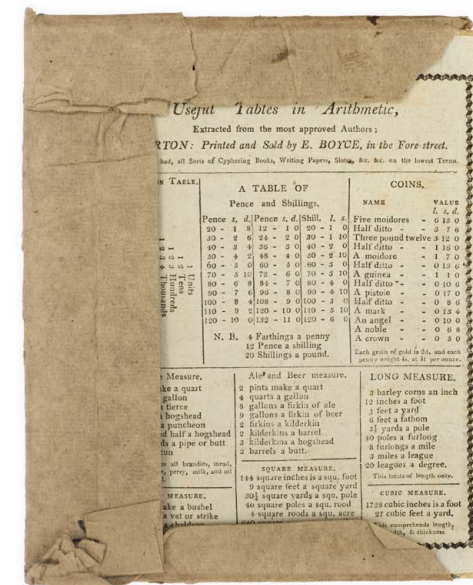 Useful Tables in Arithmetic,
Extracted from the most approved Authors;
RTON: Printed and Sold by E. BOYCE, in the Fore-street.
had, all Sorts of Cyphering Books, Writing Papers, Slates, &c. &c. on the lowest Terms.
N TABLE.
Units
Tens
Hundreds
Thousands
A TABLE OF
Pence and Shillings.
Pence s. d. Pence s. d. Shill. l. s.
20 - 1 8 12 - 1 0 20 - 1 0
30 - 2 6 24 - 2 0 30 - 1 10
40 - 3 4 36 - 3 0 40 - 2 0
50 - 4 2 48 - 4 0 50 - 2 10
60 - 5 0 60 - 5 0 60 - 3 0
70 - 5 10 72 - 6 0 70 - 3 10
80 - 6 8 84 - 7 0 80 - 4 0
90 - 7 6 96 - 8 0 90 - 4 10
100 - 8 4 108 - 9 0 100 - 5 0
110 - 9 2 120 - 10 0 110 - 5 10
120 - 10 0 132 - 11 0 120 - 6 0
N. B. 4 Farthings a penny
12 Pence a shilling
20 Shillings a pound.
COINS.
NAME VALUE
l. s. d.
Five moidores - 6 15 0
Half ditto - 3 7 6
Three pound twelve 3 12 0
Half ditto - 1 16 0
A moidore - 1 7 0
Half ditto - 0 13 6
A guinea - 1 1 0
Half ditto - 0 10 6
A pistole - 0 17 0
Half ditto - 0 8 6
A mark - 0 13 4
An angel - 0 10 0
A noble - 0 6 8
A crown - 0 5 0
Each grain of gold is 2d. and each
penny weight 4s. at 4l per ounce.
e Measure.
ke a quart
gallon
tierce
hogshead
a puncheon
d half a hogshead
ds a pipe or butt
tun
re all brandies, mead,
r, perry, milk, and oil
MEASURE.
ake a bushel
a vat or strike
Ale and Beer measure.
2 pints make a quart
4 quarts a gallon
8 gallons a firkin of ale
9 gallons a firkin of beer
2 firkins a kilderkin
2 kilderkins a barrel
3 kilderkins a hogshead
3 barrels a butt.
SQUARE MEASURE.
144 square inches is a squ. foot
9 square feet a square yard
30¼ square yards a squ. pole
40 square poles a squ. rood
4 square roods a squ. acre
640
LONG MEASURE.
3 barley corns an inch
12 inches a foot
3 feet a yard
6 feet a fathom
5½ yards a pole
40 poles a furlong
8 furlongs a mile
3 miles a league
20 leagues a degree.
This treats of length only.
CUBIC MEASURE.
1728 cubic inches is a foot
27 cubic feet a yard.
This comprehends length,
& thickness.